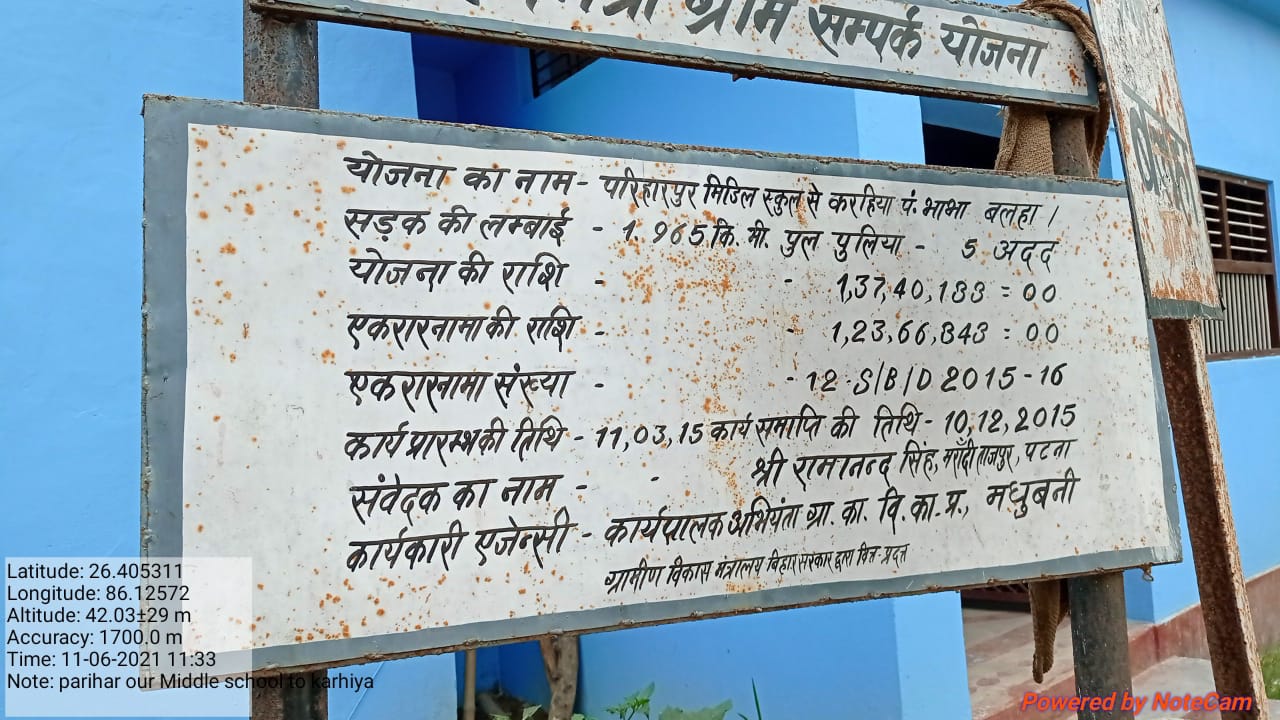 ग्राम सम्पर्क योजना
योजना का नाम - परिहारपुर मिडिल स्कुल से करहिया पं. भाभा बलहा ।
सड़क की लम्बाई - 1.965 कि. मी. पुल पुलिया - 5 अदद
योजना की राशि - - 1,37,40,133 = 00
एकरारनामा की राशि - - 1,23,66,343 = 00
एकरारनामा संख्या - - 12 S/B/D 2015-16
कार्य प्रारम्भ की तिथि - 11,03,15 कार्य समाप्ति की तिथि - 10,12,2015
संवेदक का नाम - - श्री रामानन्द सिंह, मराँदी ताजपुर, पटना
कार्यकारी एजेन्सी - कार्यपालक अभियंता ग्रा. का. वि. का. प्र., मधुबनी
ग्रामीण विकास मंत्रालय बिहार सरकार द्वारा वित्त-प्रदत्त
Latitude: 26.405311
Longitude: 86.12572
Altitude: 42.03±29 m
Accuracy: 1700.0 m
Time: 11-06-2021 11:33
Note: parihar our Middle school to karhiya
Powered by NoteCam